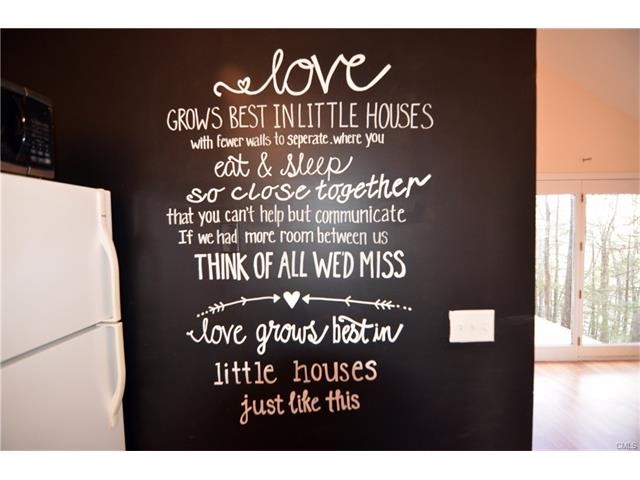 love
GROWS BEST IN LITTLE HOUSES
with fewer walls to seperate. where you
eat & sleep
so close together
that you can't help but communicate
If we had more room between us
THINK OF ALL WE'D MISS
love grows best in
little houses
just like this
CMLS